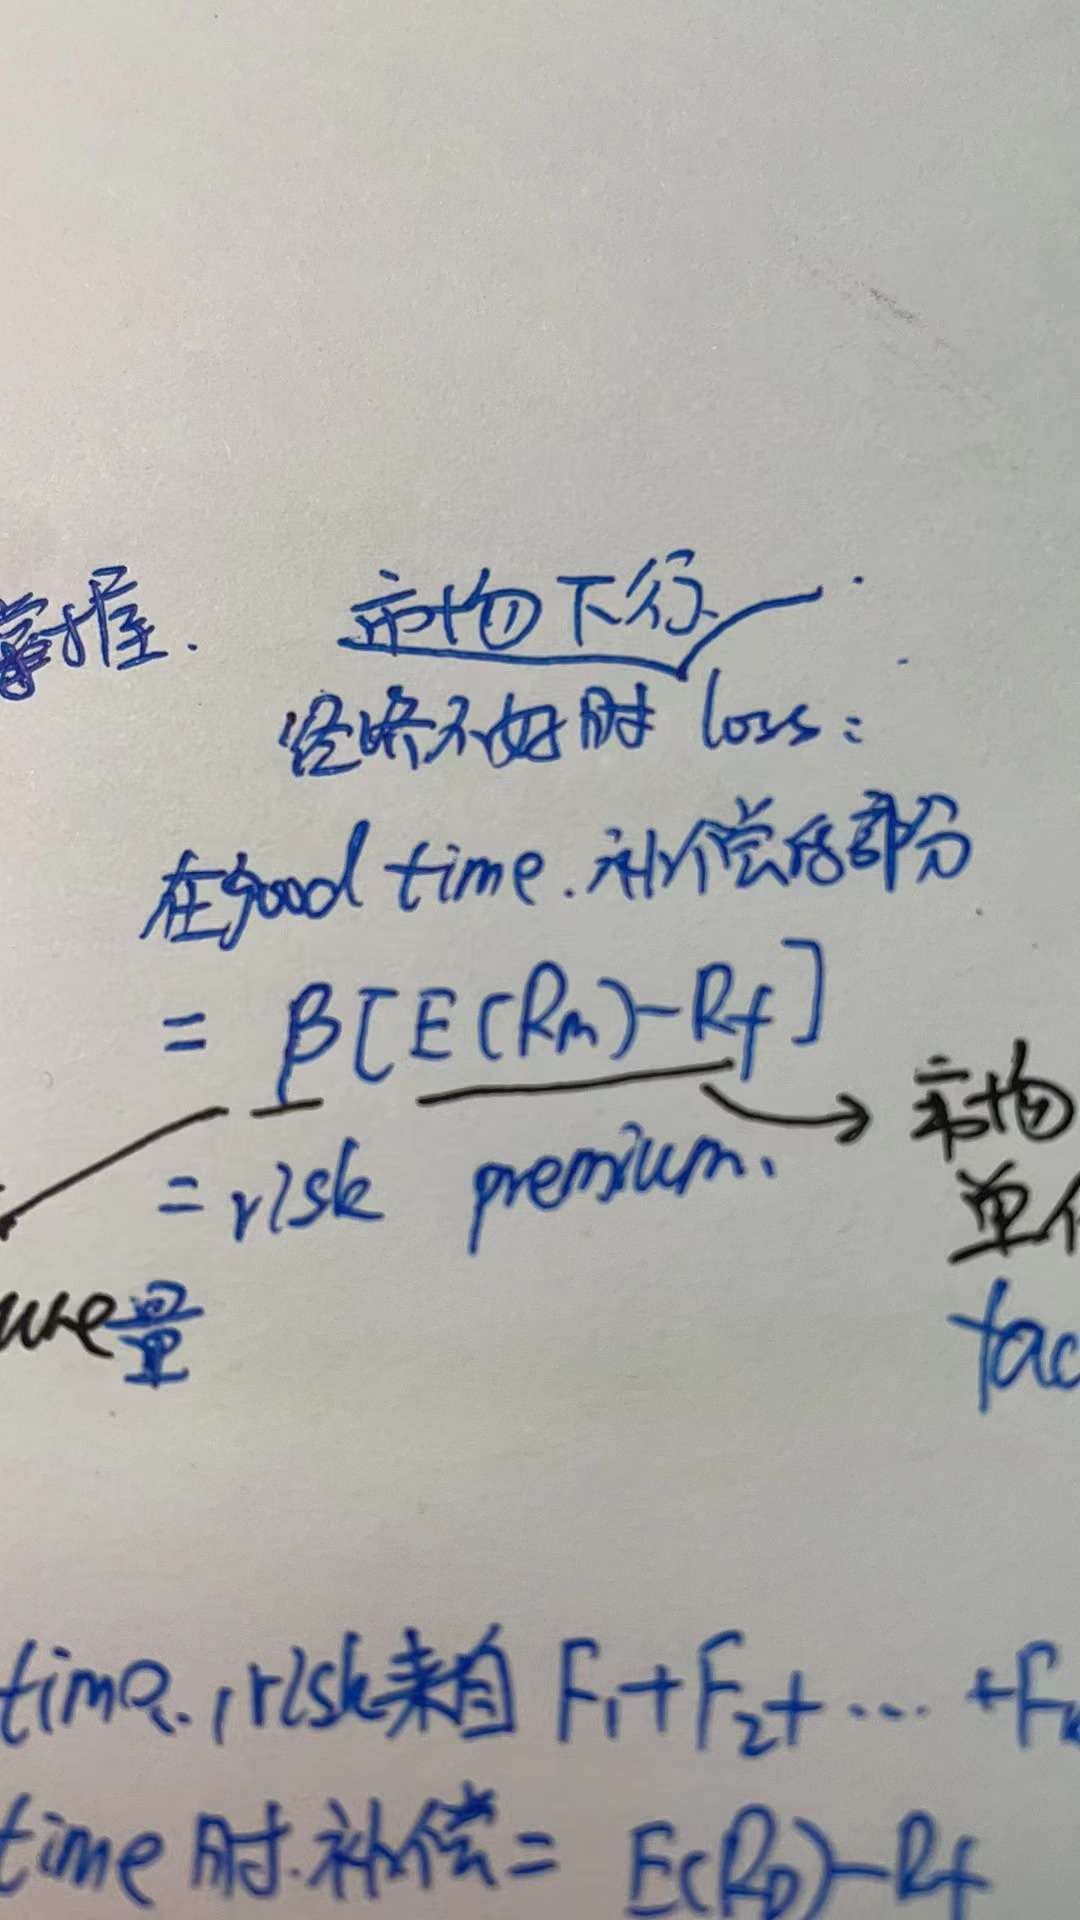 掌握. 市场下行.
经济不好时 loss:
在good time. 补偿的部分
= β[E(Rm)-Rf]
市场
= risk premium.
单
ure量
fac
time., risk来自 F₁+F₂+ … +Fₖ
time 时. 补偿= E(Rp)-Rf